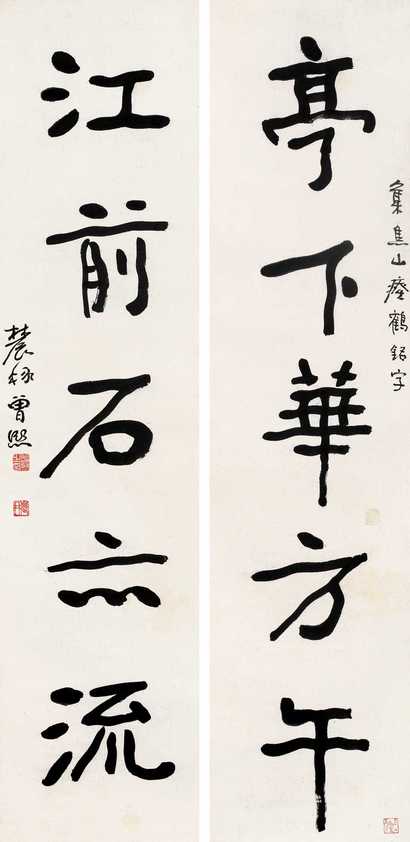 集焦山瘞鶴銘字
亭下華方午
江前石亦流
農髯曾熙